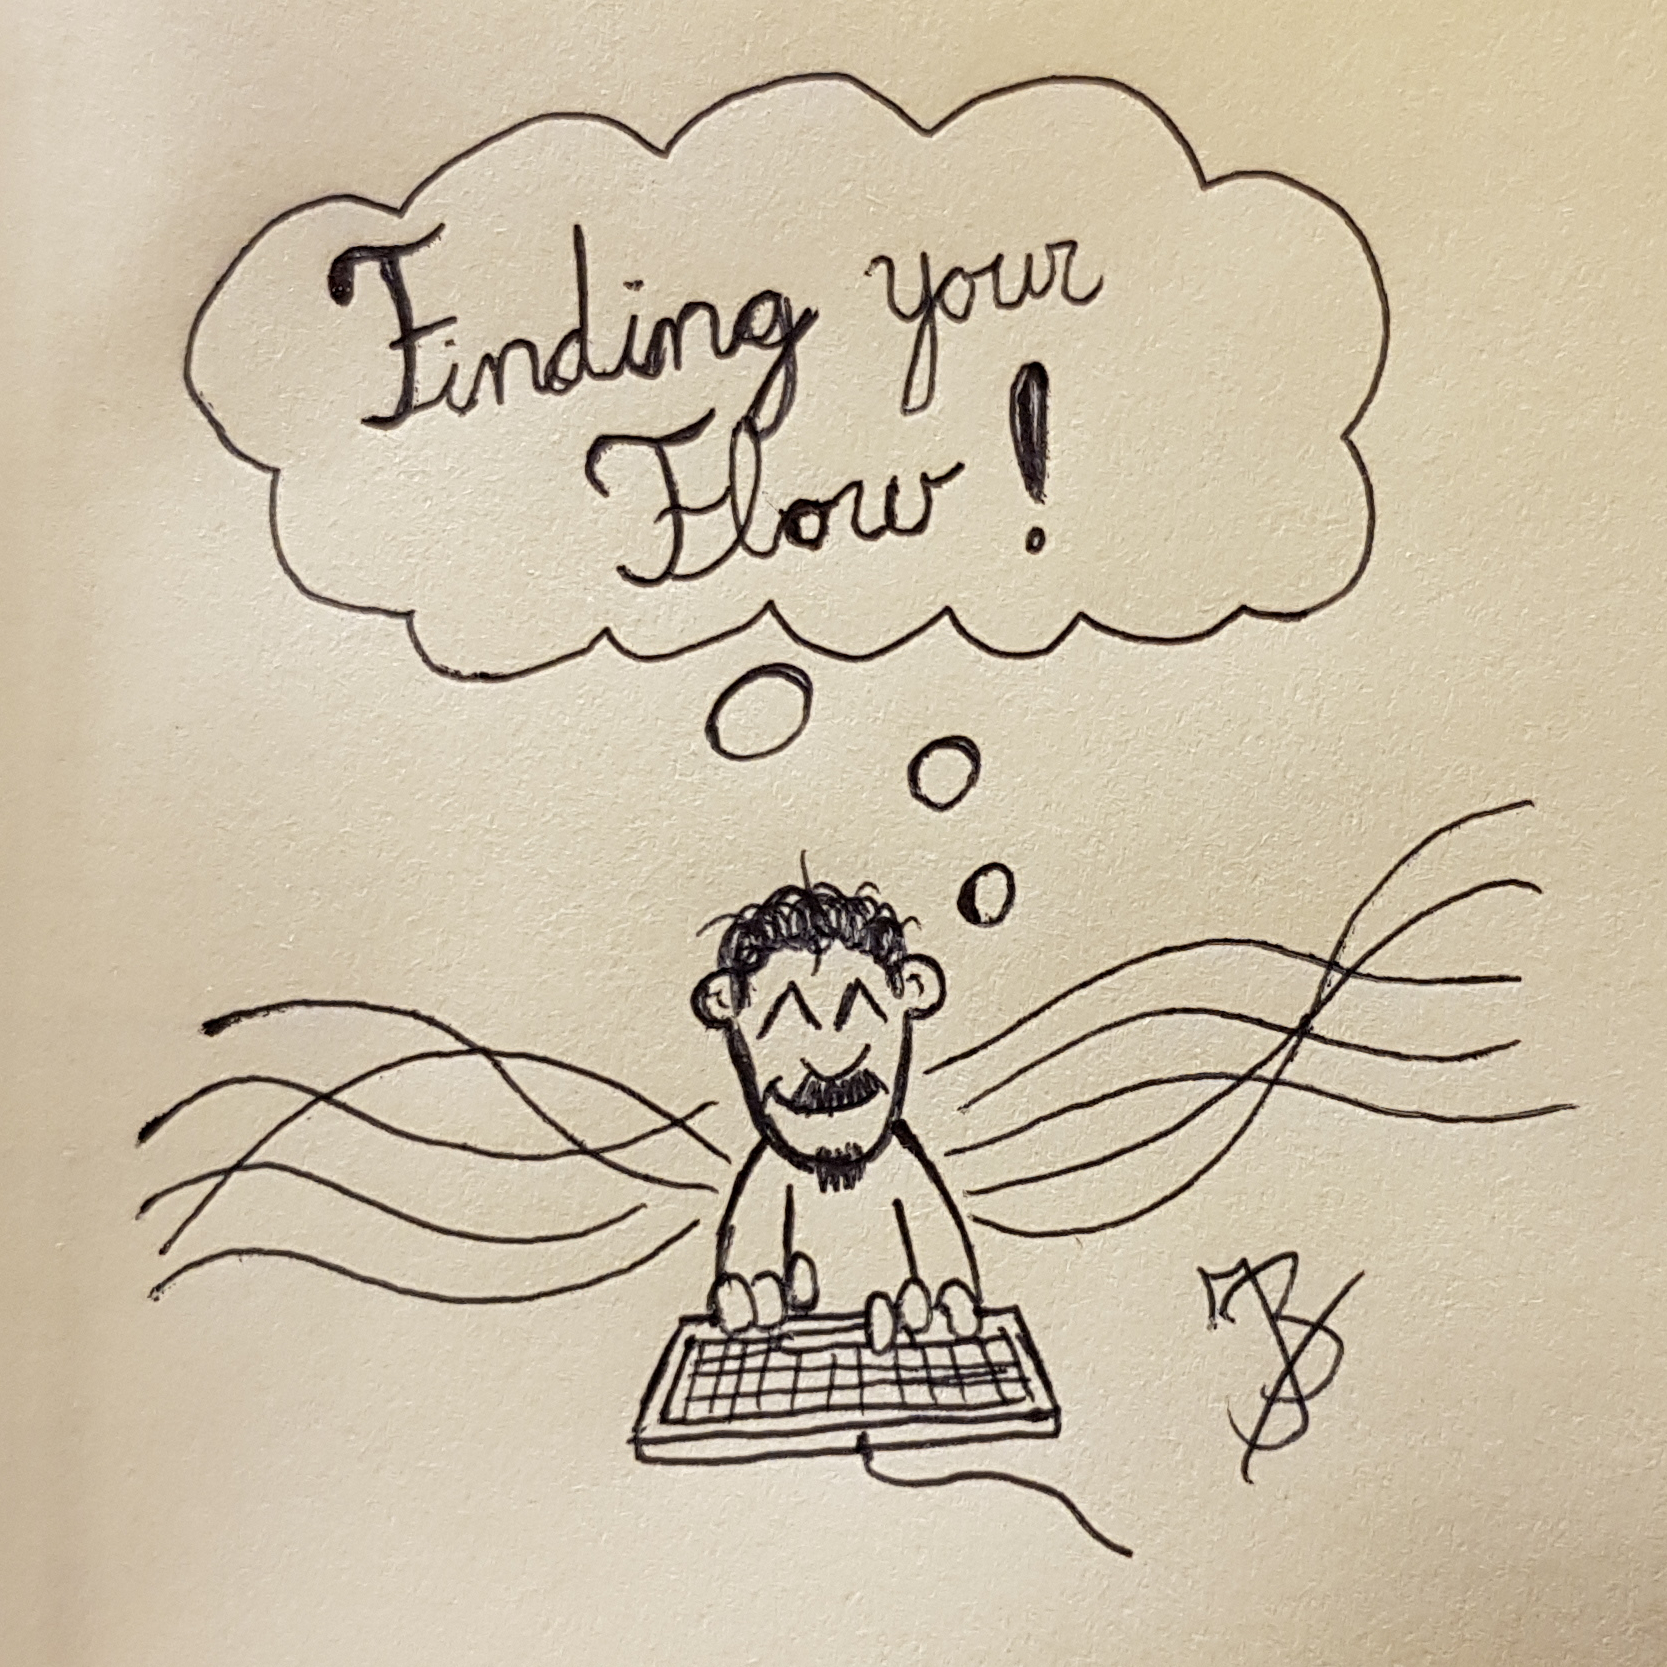 Finding your
Flow!